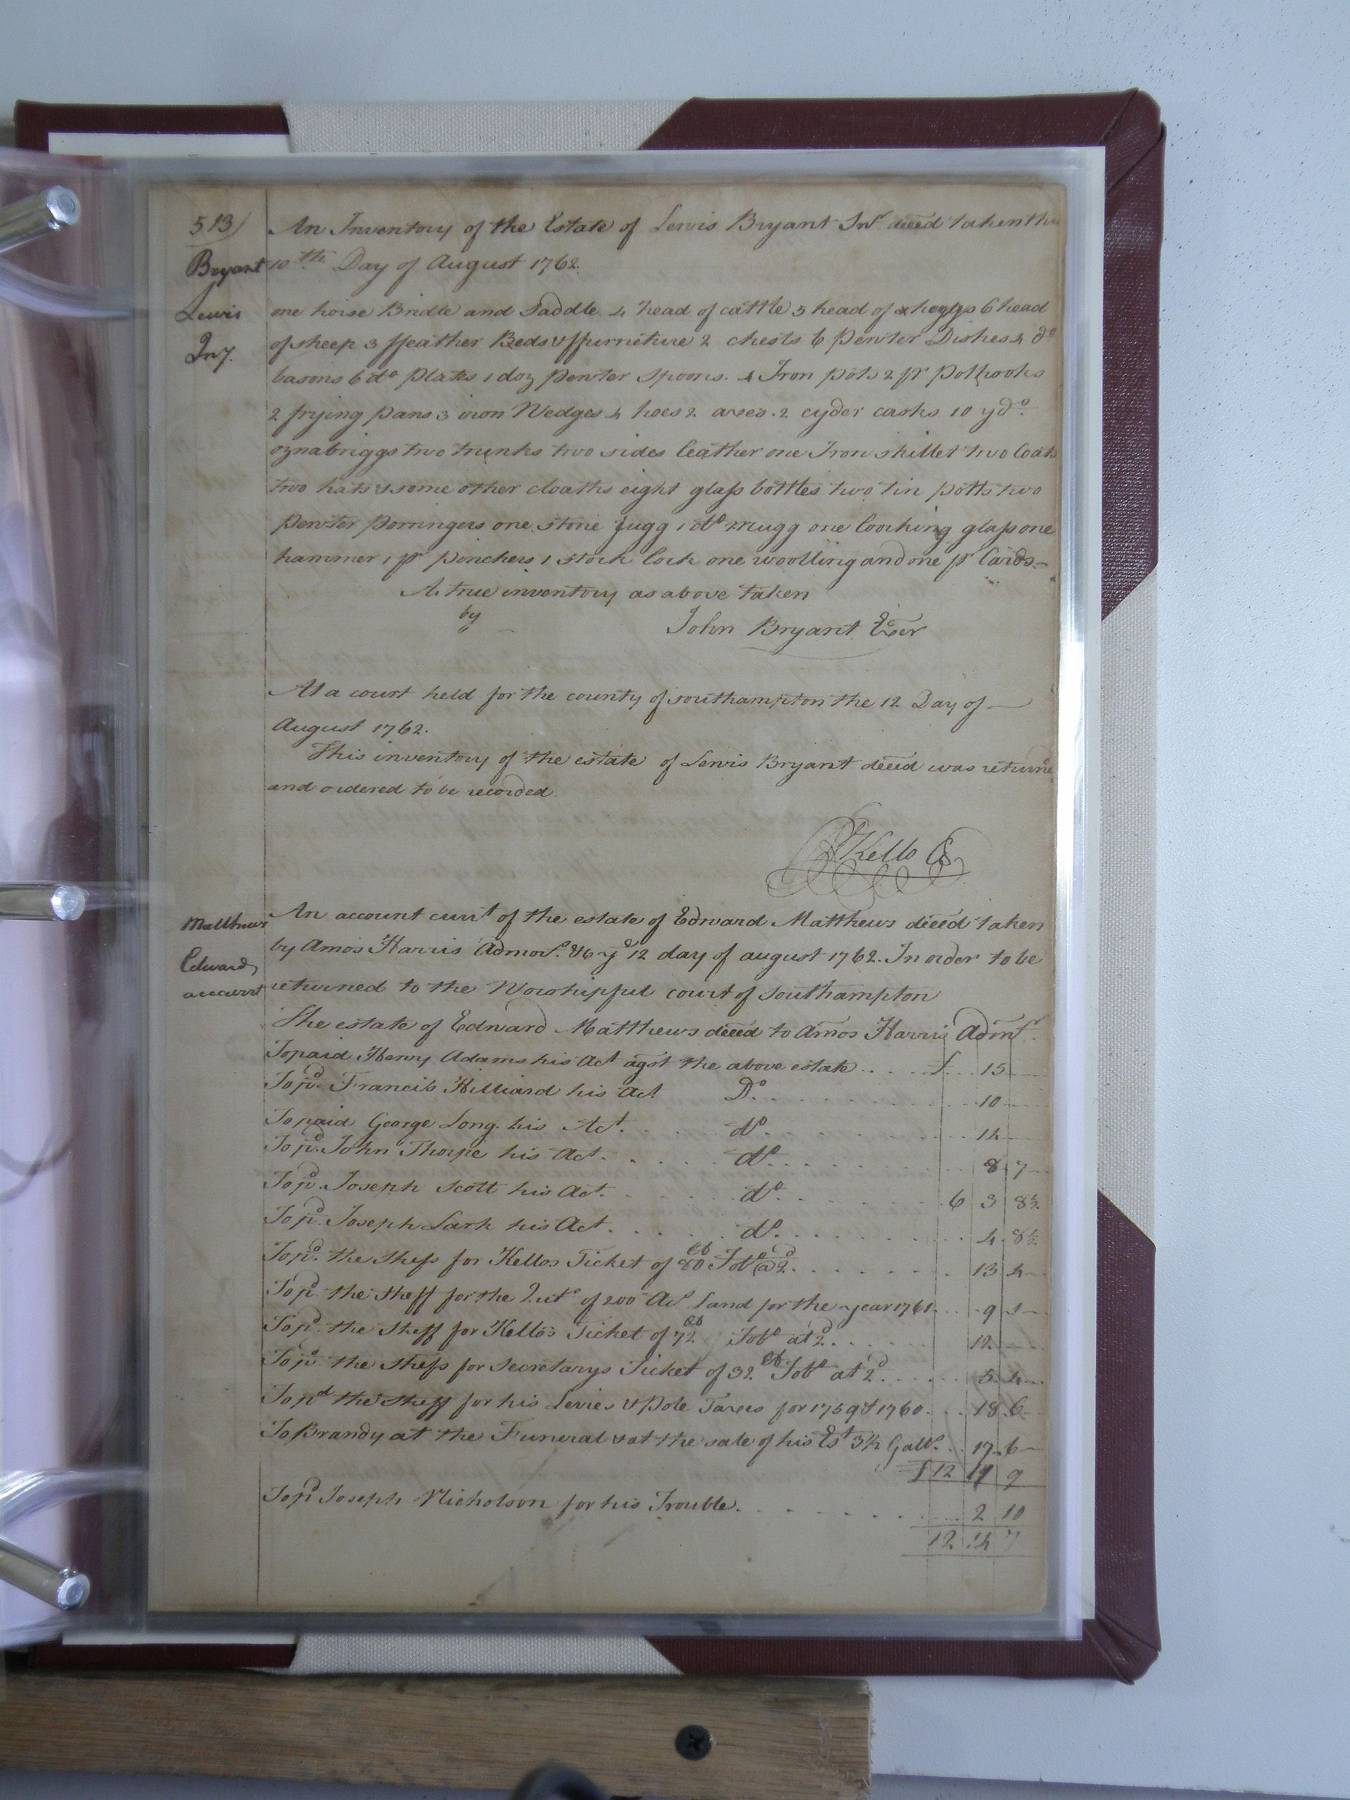 513/
Bryant
Lewis
Invy.
An Inventory of the Estate of Lewis Bryant Junr. deced taken the
10th. Day of August 1762.
one horse Bridle and Saddle 4 head of cattle 5 head of hoggs 6 head
of sheep 3 ffeather Beds & ffurniture 2 chests 6 Pewter Dishes 4 do
basons 6 do Plates 1 doz Pewter Spoons. 4 Iron pots 2 pr Pothooks
2 frying pans 3 iron Wedges 4 hoes 2 axes. 2 cyder casks 10 yds.
oznabriggs two trunks two sides leather one Iron skillet two Coats
two hats & some other cloaths eight glass bottles two tin potts two
Pewter Porringers one Stone Jugg 1 do Mugg one loocking glass one
hammer 1 pr pinchers 1 stock lock one woolling and one pr Cards
A true inventory as above taken
by
John Bryant Exer
At a court held for the county of southampton the 12 Day of
August 1762.
This inventory of the estate of Lewis Bryant deced was returned
and ordered to be recorded.
Kello
Matthews
Edward
account
An account curt of the estate of Edward Matthews deced taken
by Amos Harris Admor. &c ye 12 day of august 1762. In order to be
returned to the Worshipful court of Southampton
The estate of Edward Matthews deced to Amos Harris Admr.
To paid Henry Adams his Act agst the above estate .... £ .. 15
To pd. Francis Hilliard his Act Do. 10
To paid George Long his Act. do. 14
To pd. John Thorpe his Act. do. 8 7
To pd. Joseph Scott his Act. do. 6 3 8½
To pd. Joseph Lark his Act. do. 4 8½
To pd. the Sheff for Kellos Ticket of 80 lb Tobo @ 2d. 13 4
To pd. the Sheff for the Quts of 200 Acs Land for the year 1761. 9 1
To pd. the Sheff for Kello's Ticket of 72 lb Tobo at 2d. 12
To pd. the Sheff for Secretarys Ticket of 32 lb Tobo at 2d. 5 4
To pd the Sheff for his Levies & Pole Taxes for 1759 & 1760. 18 6
To Brandy at the Funeral & at the sale of his Est 3½ Galls. 17 6
£ 12 11 9
To pd Joseph Nicholson for his Trouble. 2 10
12 14 7